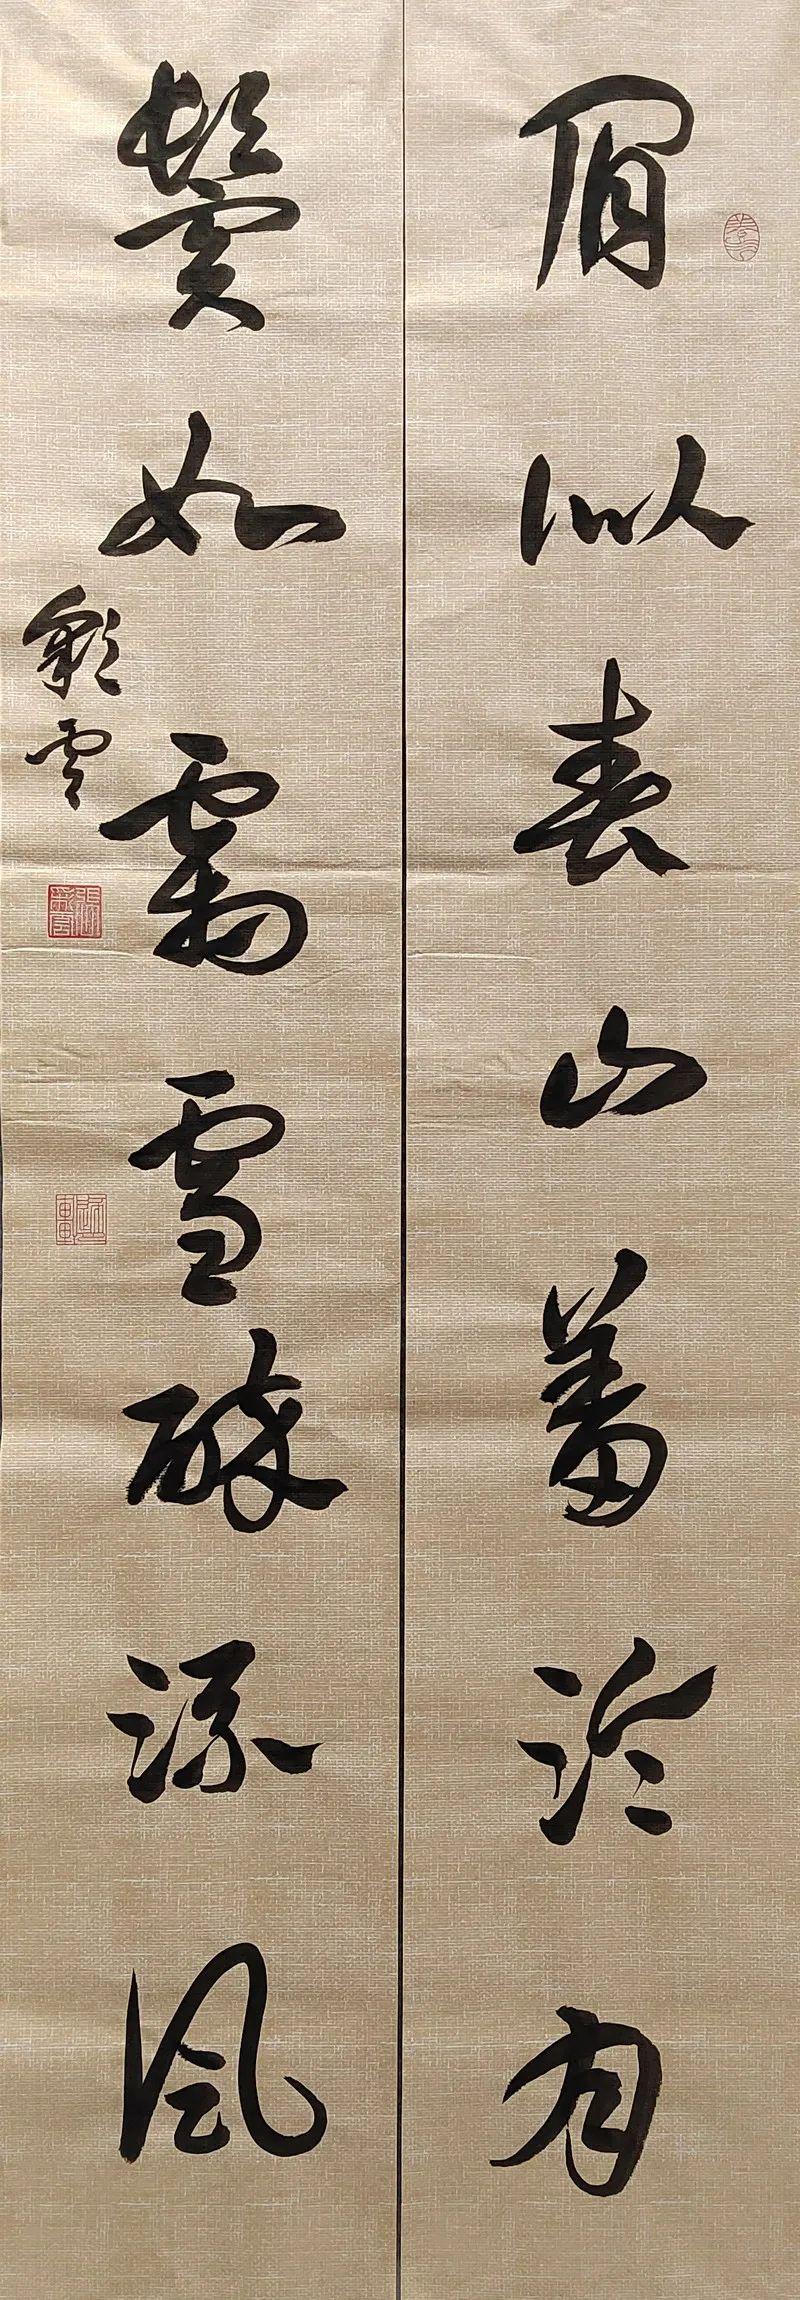 眉似春山蓄冷月
鬓如霜雪醉流风
彩云